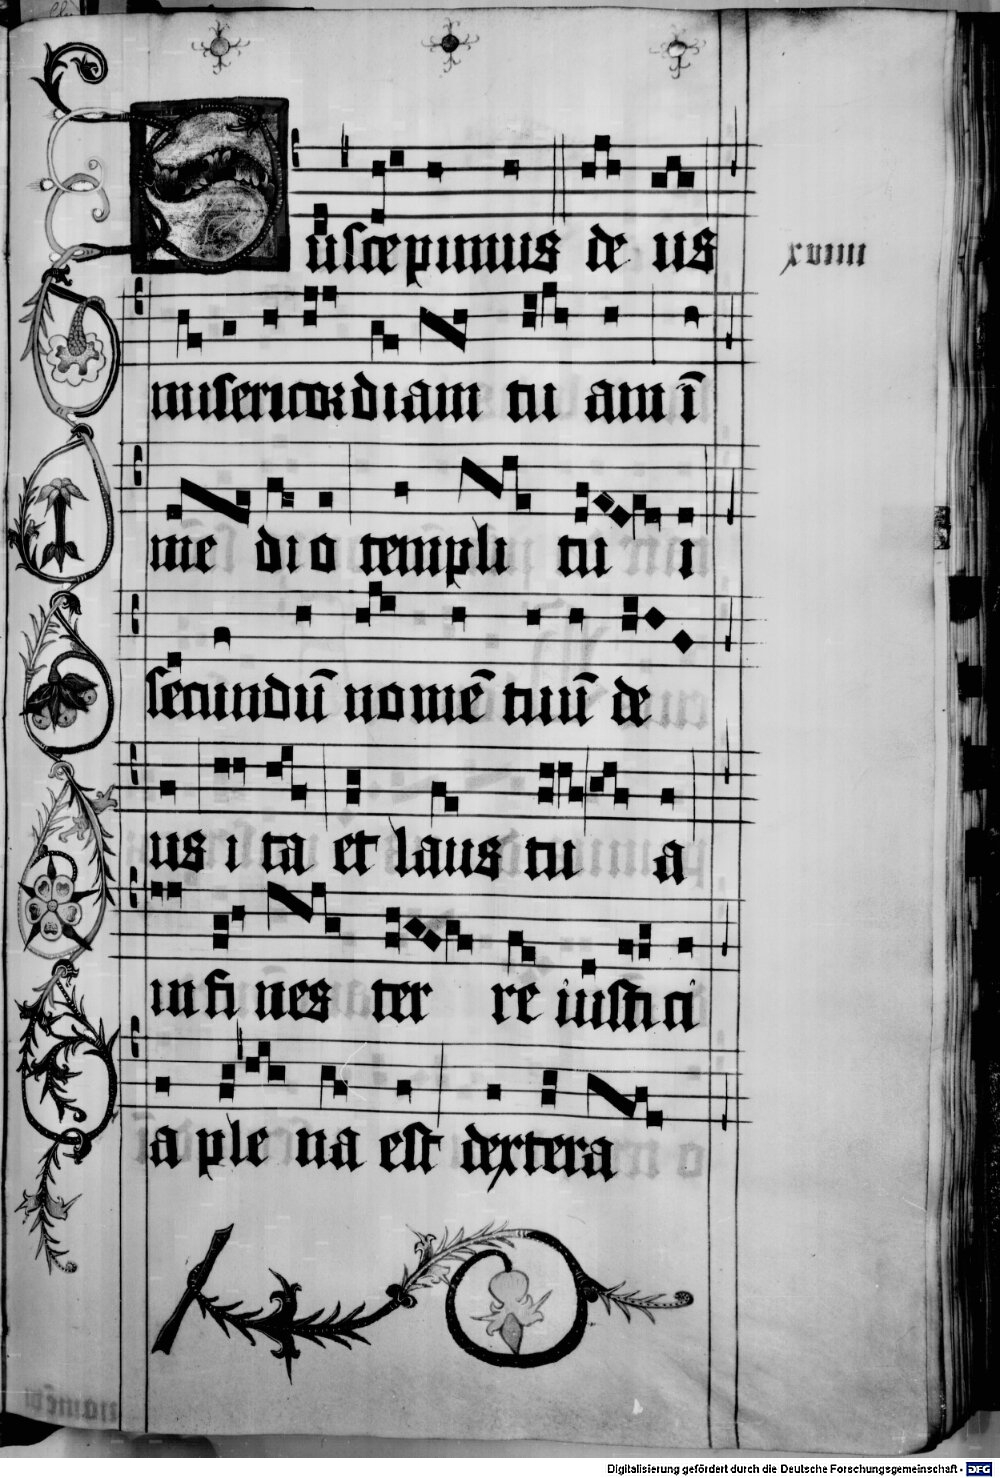 Suscepimus de us
xviiii
misericordiam tu am ī
me dio templi tu i
secundū nomē tuū de
us i ta et laus tu a
in fi nes ter re iusti ci
a ple na est dextera
Digitalisierung gefördert durch die Deutsche Forschungsgemeinschaft - DFG